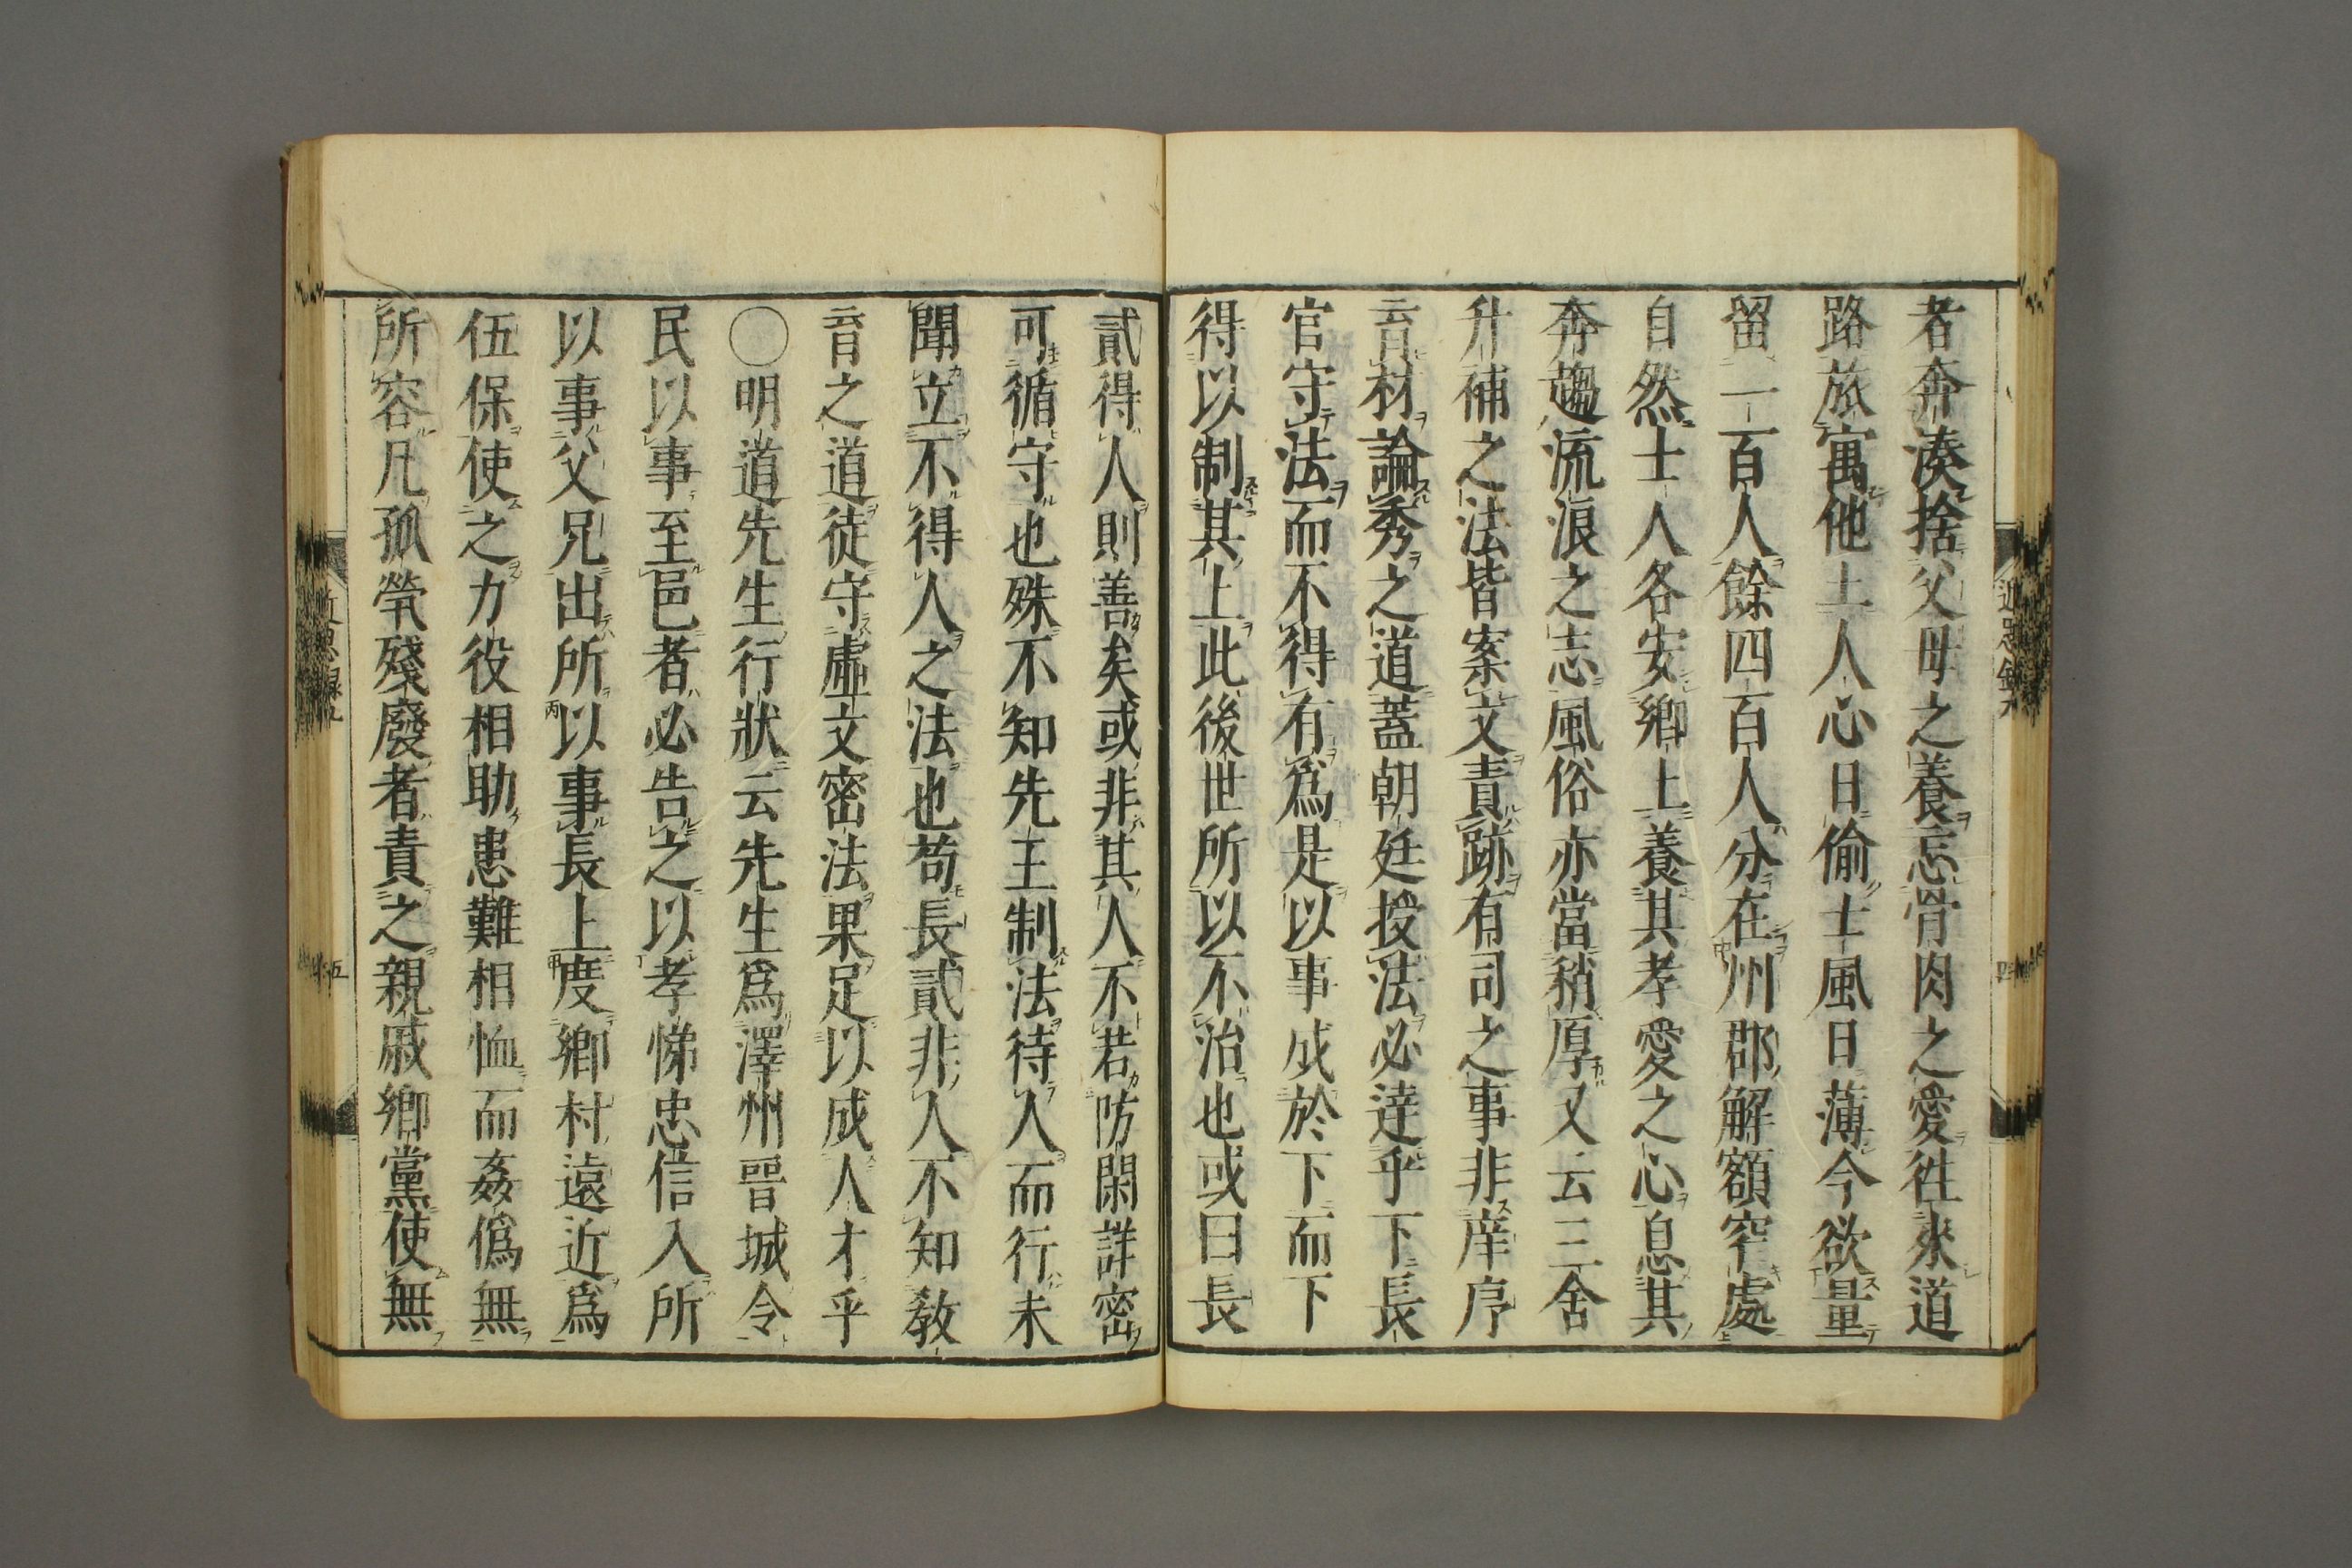 者奔湊捨父母之養忘骨肉之愛徃來道
路旅寓他土人心日偷士風日薄今欲量
留一百人餘四百人分在州郡解額窄處
自然士人各安鄉土養其孝愛之心息其
奔趨流浪之志風俗亦當稍厚又云三舍
升補之法皆案文責跡有司之事非庠序
育材論秀之道蓋朝廷授法必達乎下長
官守法而不得有爲是以事成於下而下
得以制其上此後世所以不治也或曰長
貳得人則善矣或非其人不若防閑詳密
可循守也殊不知先王制法待人而行未
聞立不得人之法也苟長貳非人不知教
育之道徒守虛文密法果足以成人才乎
○明道先生行狀云先生爲澤州晉城令
民以事至邑者必告之以孝悌忠信入所
以事父兄出所以事長上度鄉村遠近爲
伍保使之力役相助患難相恤而姦僞無
所容凡孤煢殘廢者責之親戚鄉黨使無